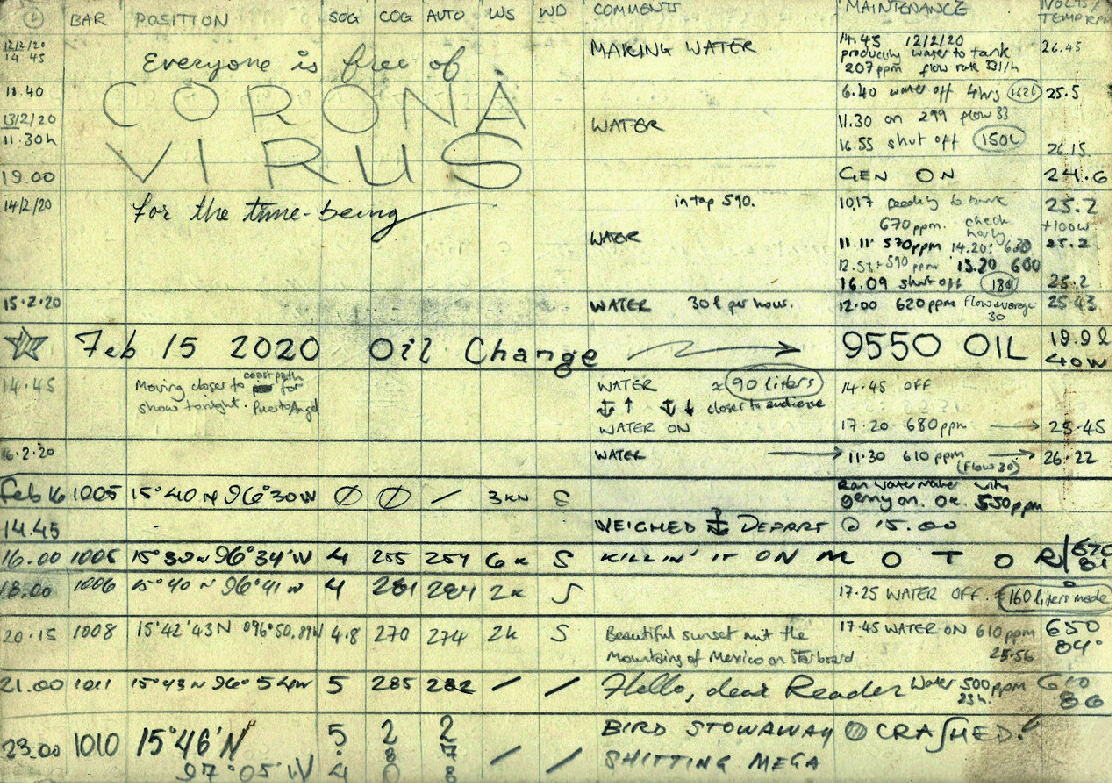 BAR POSITION SOG COG AUTO WS WD COMMENTS MAINTENANCE VOLTS/
TEMP RPM
12/2/20 MAKING WATER 14.45 12/2/20 26.45
14 45 Everyone is free of producing water to tank
207 ppm flow rate 331/h
18.40 CORONA 6.40 water off 4hrs 25.5
13/2/20 WATER 11.30 on 299 flow 33
11.30h VIRUS 16.55 shut off 150L 26.15
19.00 GEN ON 24.6
14/2/20 for the time-being in tap 590. 1017 to tank 25.2
670 ppm. check +100W
WATER hourly
11.11 570ppm 14.20 25.2
590 ppm 15.20 600
16.09 shut off 180 25.2
15.2.20 WATER 30 l per hour. 12.00 620ppm flow average 25.43
30
Feb 15 2020 Oil Change 9550 OIL 19.9 l
40W
14.45 Moving closer to coast path for WATER ≈ 90 liters 14.45 OFF
show tonight. Puerto Angel ⚓↑ ⚓↓ closer to audience
WATER ON 17.20 680ppm → 25.45
16.2.20 WATER → 11.30 610 ppm → 26.22
(flow 30)
Feb 16 1005 15°40 N 96°30W Ø Ø / 3kn S Ran watermaker with
genny on. OK. 550ppm
14.45 WEIGHED ⚓ DEPART @ 15.00
16.00 1005 15°39 N 96°34'W 4 255 257 6k S KILLIN' IT ON MOTOR/
18.00 1006 15°40 N 96°41 W 4 281 284 2k S 17.25 WATER OFF. 160 liters made
20.15 1008 15°42'43N 4.8 270 274 2k S Beautiful sunset and the 17.45 WATER ON 610 ppm 650
Mountains of Mexico on Starboard 25.56 84°
21.00 1011 15°43 N 96°54W 5 285 282 / / Hello, dear Reader Water 500ppm 610
86
23.00 1010 15°46'N 5 2 2 BIRD STOWAWAY CRASHED!
97°05'W 4 8 7 / / SHITTING MEGA
0 8